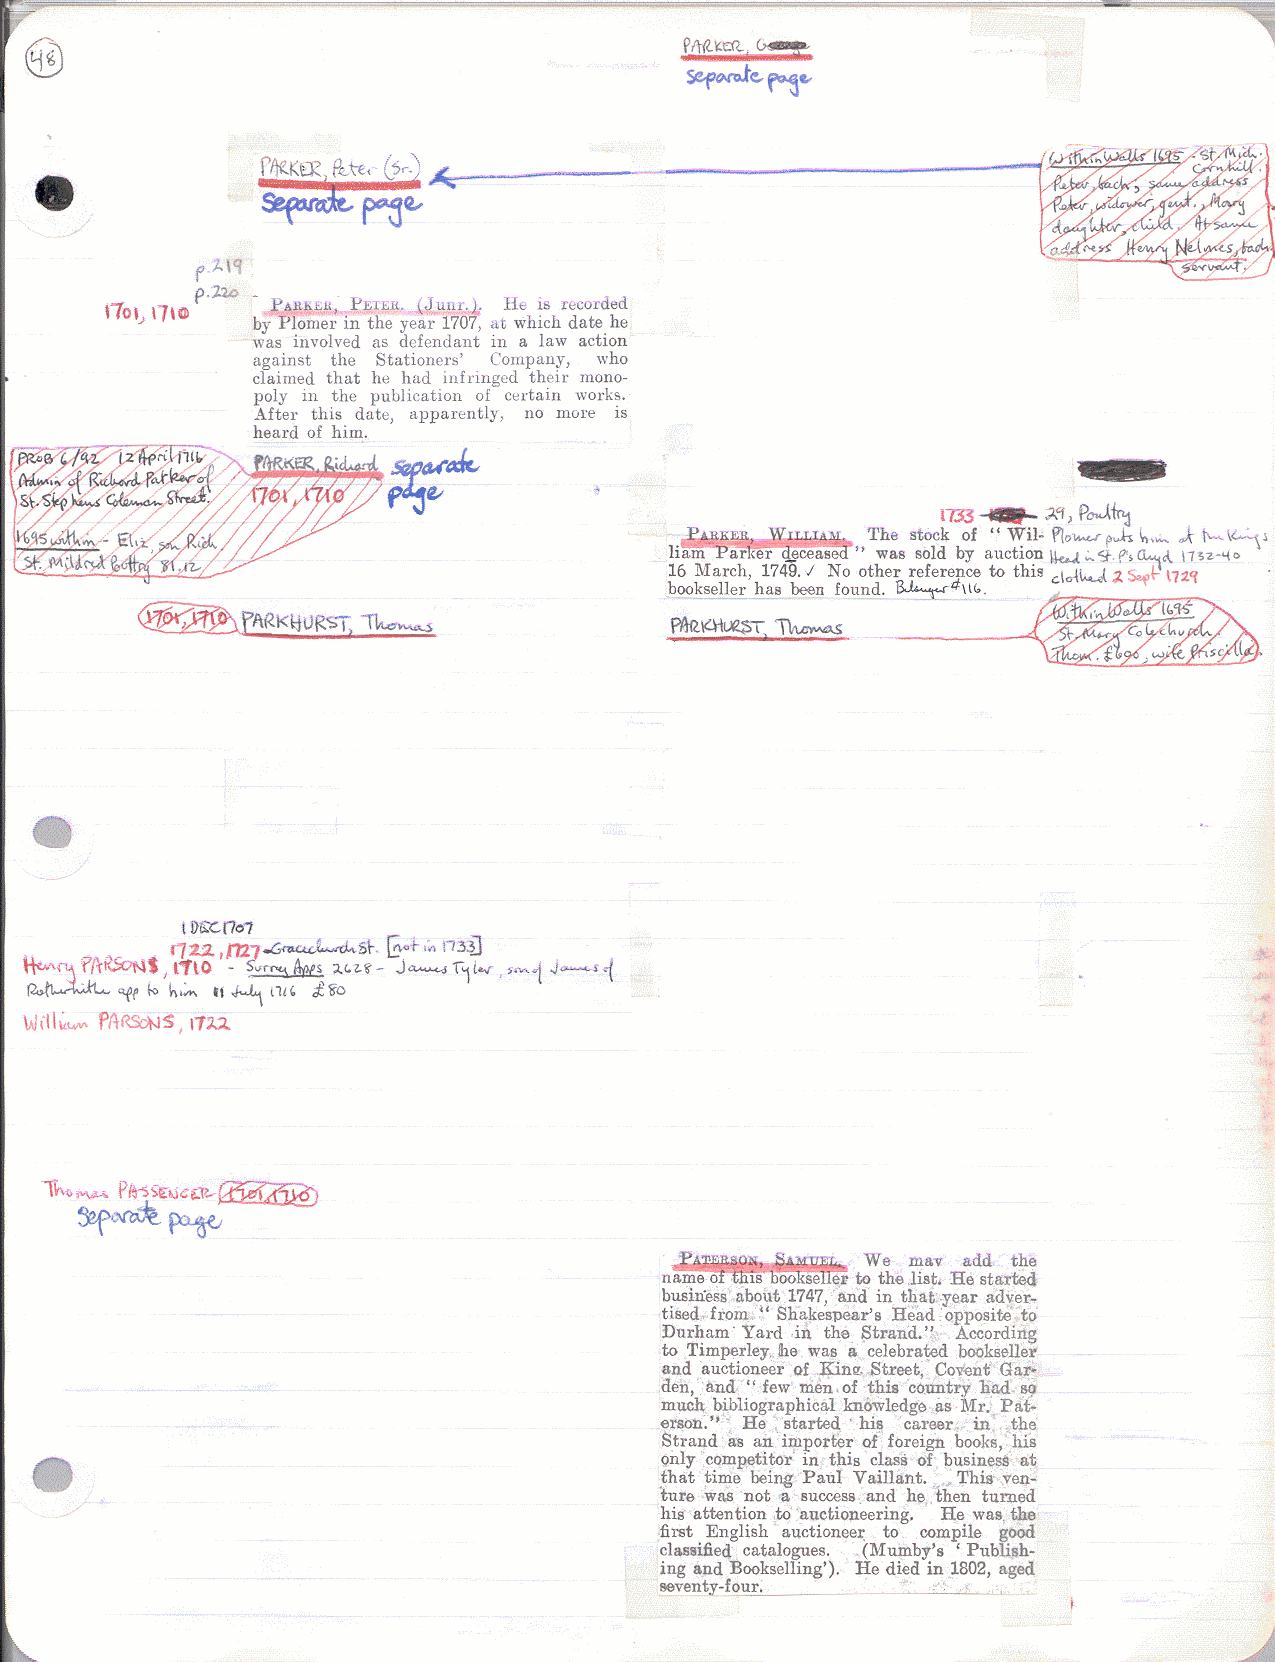 48
PARKER, G
separate page
PARKER, Peter (Sr.)
separate page
Within Walls 1695 - St. Mich.
Cornhill.
Peter, bach; same address
Peter, widower, gent., Mary
daughter, child. At same
address Henry Nelmes, bach.
servant.
p.219
p.220
1701, 1710
PARKER, PETER. (Junr.). He is recorded
by Plomer in the year 1707, at which date he
was involved as defendant in a law action
against the Stationers' Company, who
claimed that he had infringed their mono-
poly in the publication of certain works.
After this date, apparently, no more is
heard of him.
PROB 6/92 12 April 1716
Admin of Richard Parker of
St. Stephens Coleman Street.
1695 within - Eliz, son Rich
St. Mildred Poultry 81.12
PARKER, Richard separate
1701, 1710 page
1733 29, Poultry
PARKER, WILLIAM. The stock of "Wil-
liam Parker deceased" was sold by auction
16 March, 1749. ✓ No other reference to this
bookseller has been found. Belanger #116.
Plomer puts him at the Kings
Head in St. P's Chyd 1732-40
clothed 2 Sept 1729
1701, 1710 PARKHURST, Thomas
PARKHURST, Thomas
Within Walls 1695
St. Mary Colechurch.
Thom. £600, wife Priscilla.
1 DEC 1707
1722, 1727 - Gracechurch St. [not in 1733]
Henry PARSONS, 1710 - Surrey Apps 2628 - James Tyler, son of James of
Rotherhithe app to him 11 July 1716 £80
William PARSONS, 1722
Thomas PASSENGER 1701, 1710
separate page
PATERSON, SAMUEL. We may add the
name of this bookseller to the list. He started
business about 1747, and in that year adver-
tised from "Shakespear's Head opposite to
Durham Yard in the Strand." According
to Timperley he was a celebrated bookseller
and auctioneer of King Street, Covent Gar-
den, and "few men of this country had so
much bibliographical knowledge as Mr. Pat-
erson." He started his career in the
Strand as an importer of foreign books, his
only competitor in this class of business at
that time being Paul Vaillant. This ven-
ture was not a success and he then turned
his attention to auctioneering. He was the
first English auctioneer to compile good
classified catalogues. (Mumby's 'Publish-
ing and Bookselling'). He died in 1802, aged
seventy-four.